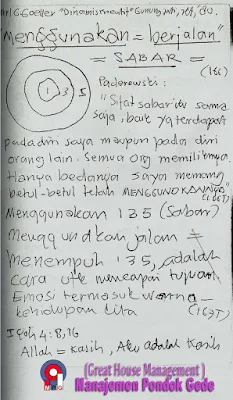 arl G Goeller "Dinamis motif" Gunung jati, jkt,
menggunakan = berjalan"
= SABAR =
(166)
1 3 5
Paderewski:
"Sifat sabar itu sama
saja, baik yg terdapat
pada diri saya maupun pada diri
orang lain. Semua org memilikinya.
Hanya bedanya saya memang
betul-betul telah MENGGUNAKANNYA"
(166T)
Menggunakan 135 (Sabar)
Menggunakan jalan =
Menempuh 135, adalah
cara utk mencapai tujuan.
Emosi termasuk warna-
kehidupan kita
(167T)
I Yoh 4:8,16
Allah = Kasih, Aku adalah Kasih
(Great House Management )
Manajemen Pondok Gede